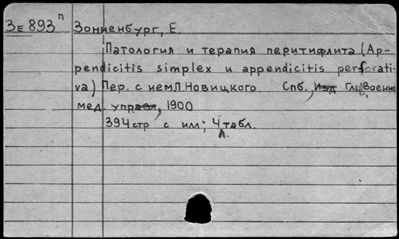 Зе 893 п Зонненбург, Е.
Патология и терапия перитифлита (Ap-
pendicitis simplex и appendicitis perforati-
va) Пер. с нем Л. Новицкого. Спб., Изд Гл. Воени
мед. управл, 1900
394 стр с илл; 4 табл.